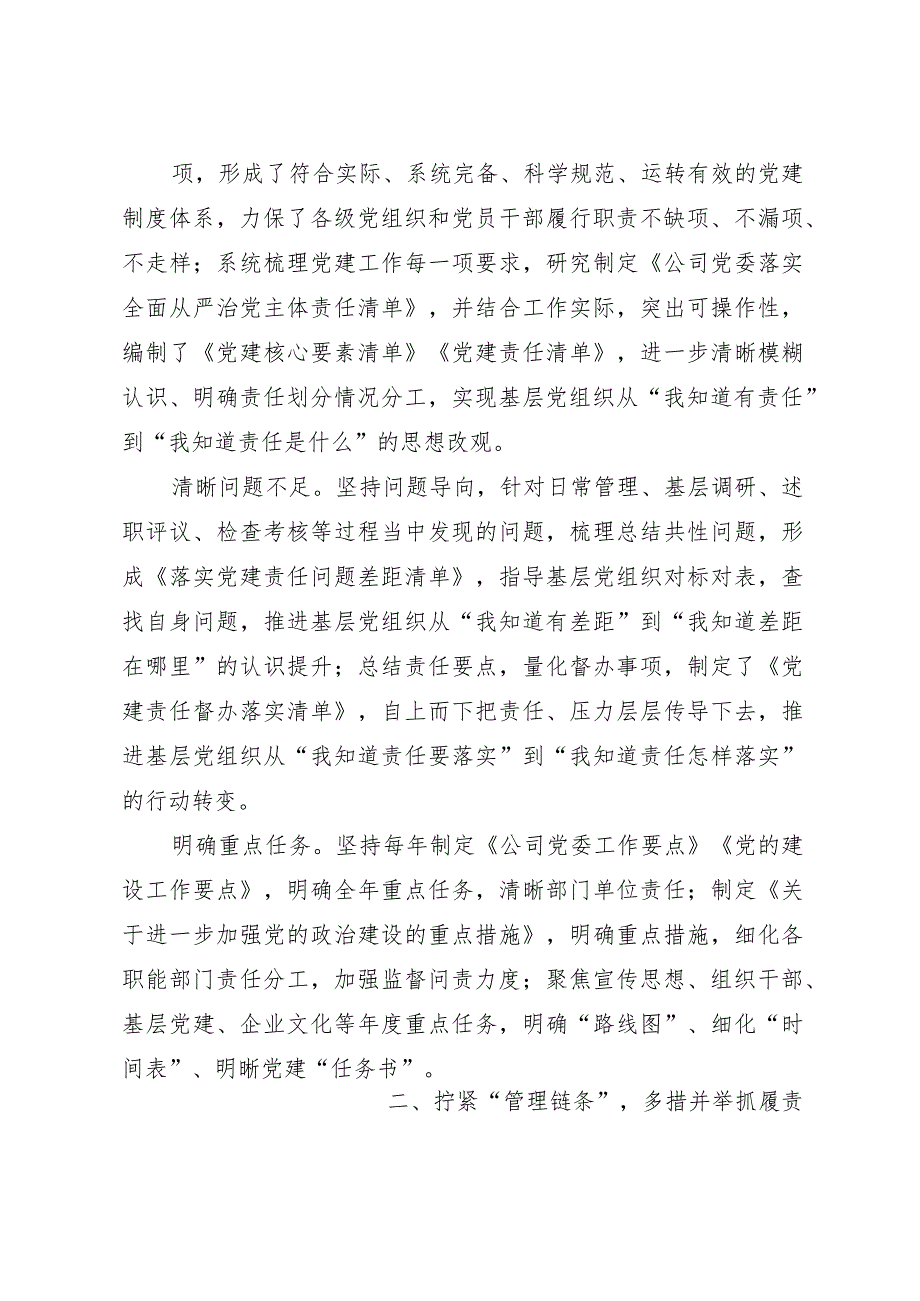 项，形成了符合实际、系统完备、科学规范、运转有效的党建
制度体系，力保了各级党组织和党员干部履行职责不缺项、不漏项、
不走样；系统梳理党建工作每一项要求，研究制定《公司党委落实
全面从严治党主体责任清单》，并结合工作实际，突出可操作性，
编制了《党建核心要素清单》《党建责任清单》，进一步清晰模糊
认识、明确责任划分情况分工，实现基层党组织从“我知道有责任”
到“我知道责任是什么”的思想改观。
清晰问题不足。坚持问题导向，针对日常管理、基层调研、述
职评议、检查考核等过程当中发现的问题，梳理总结共性问题，形
成《落实党建责任问题差距清单》，指导基层党组织对标对表，查
找自身问题，推进基层党组织从“我知道有差距”到“我知道差距
在哪里”的认识提升；总结责任要点，量化督办事项，制定了《党
建责任督办落实清单》，自上而下把责任、压力层层传导下去，推
进基层党组织从“我知道责任要落实”到“我知道责任怎样落实”
的行动转变。
明确重点任务。坚持每年制定《公司党委工作要点》《党的建
设工作要点》，明确全年重点任务，清晰部门单位责任；制定《关
于进一步加强党的政治建设的重点措施》，明确重点措施，细化各
职能部门责任分工，加强监督问责力度；聚焦宣传思想、组织干部、
基层党建、企业文化等年度重点任务，明确“路线图”、细化“时
间表”、明晰党建“任务书”。
二、拧紧“管理链条”，多措并举抓履责